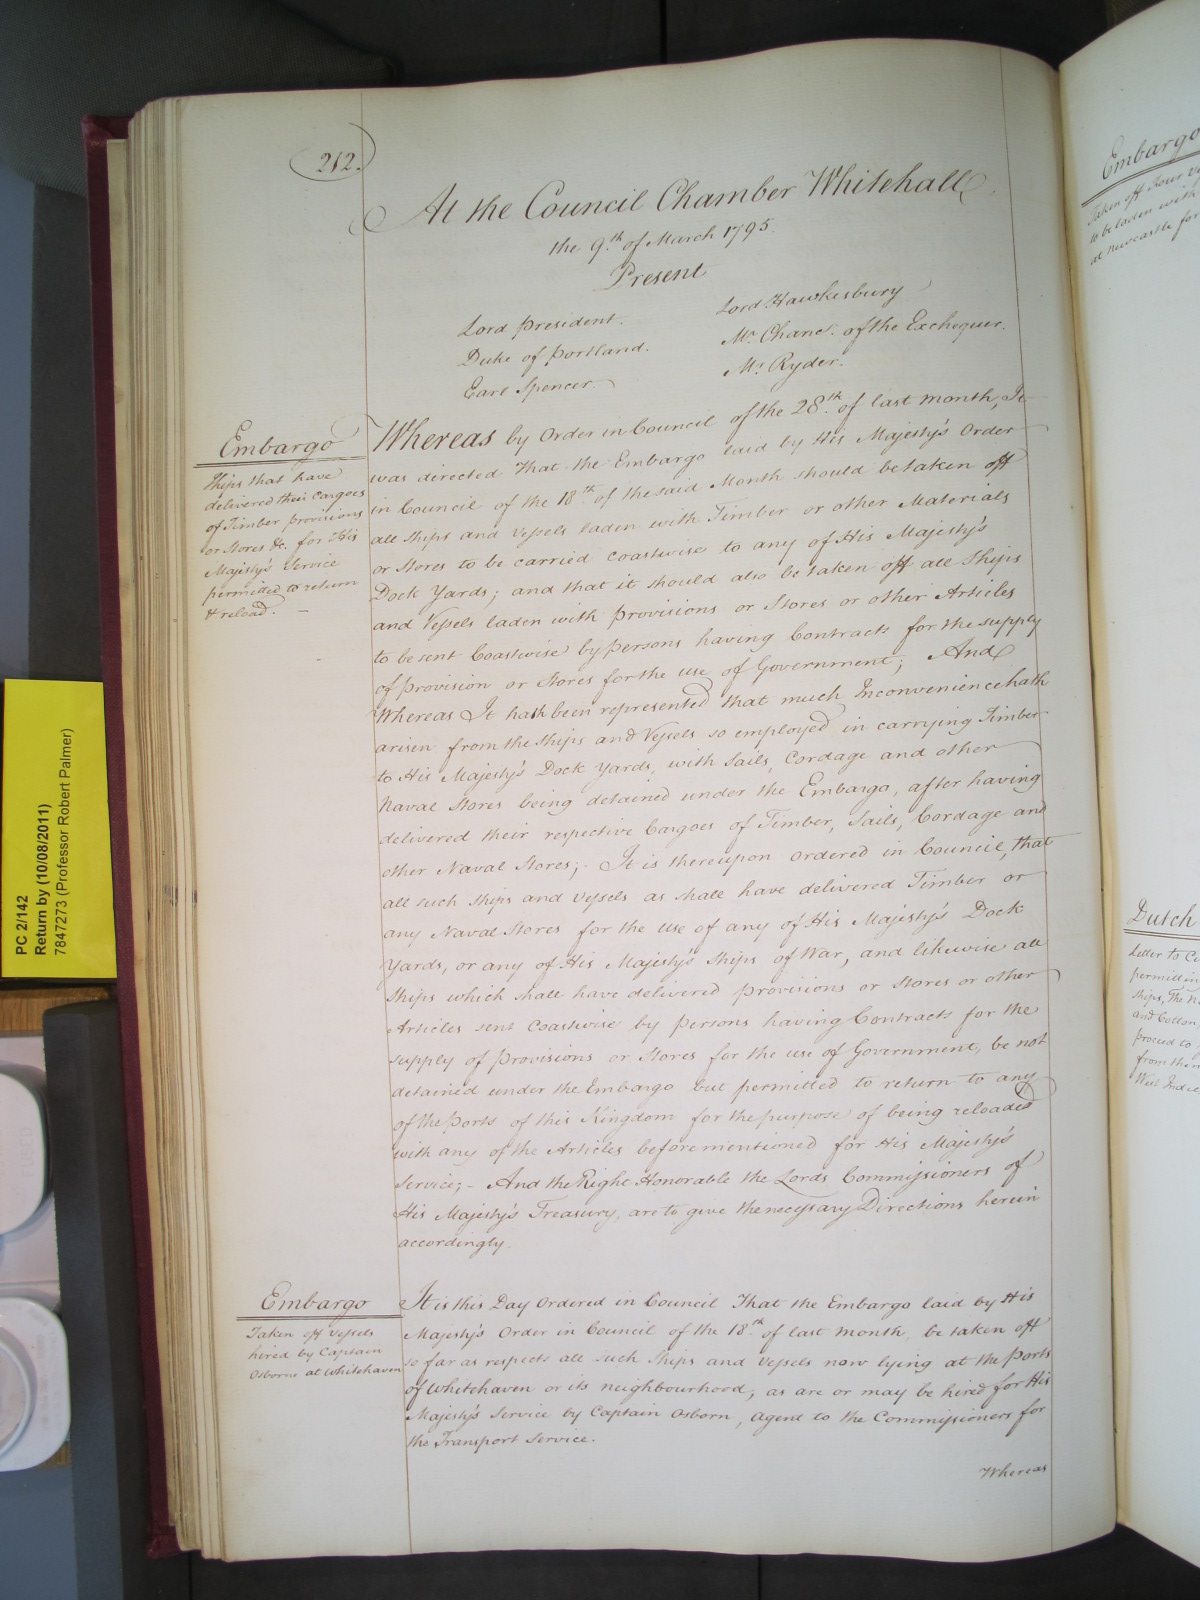 212.
At the Council Chamber Whitehall
the 9th of March 1795.
Present
Lord President.
Duke of Portland.
Earl Spencer
Lord Hawkesbury
Mr Chancr. of the Exchequer.
Mr Ryder.
Embargo
Ships that have
delivered their Cargoes
of Timber provisions
or Stores &c. for His
Majesty's Service
permitted to return
& reload. —
Whereas by Order in Council of the 28th of last Month, It
was directed That the Embargo laid by His Majesty's Order
in Council of the 18th of the said Month should be taken off
all Ships and Vessels laden with Timber or other Materials
or Stores to be carried Coastwise to any of His Majesty's
Dock Yards; and that it should also be taken off all Ships
and Vessels laden with provisions or Stores or other Articles
to be sent Coastwise by persons having Contracts for the supply
of provision or Stores for the use of Government; And
Whereas It hath been represented that much Inconvenience hath
arisen from the Ships and Vessels so employed in carrying Timber
to His Majesty's Dock Yards, with Sails, Cordage and other
Naval Stores being detained under the Embargo, after having
delivered their respective Cargoes of Timber, Sails, Cordage and
other Naval Stores;- It is thereupon Ordered in Council, that
all such Ships and Vessels as shall have delivered Timber or
any Naval Stores for the use of any of His Majesty's Dock
Yards, or any of His Majesty's Ships of War, and likewise all
Ships which shall have delivered provisions or Stores or other
Articles sent Coastwise by persons having Contracts for the
supply of provisions or Stores for the use of Government, be not
detained under the Embargo but permitted to return to any
of the Ports of this Kingdom for the purpose of being reloaded
with any of the Articles beforementioned for His Majesty's
Service;- And the Right Honorable the Lords Commissioners of
His Majesty's Treasury, are to give the necessary Directions herein
accordingly.
Embargo
Taken off Vessels
hired by Captain
Osborne at Whitehaven
It is this Day Ordered in Council That the Embargo laid by His
Majesty's Order in Council of the 18th of last Month, be taken off
so far as respects all such Ships and Vessels now lying at the Ports
of Whitehaven or its neighbourhood, as are or may be hired for His
Majesty's Service by Captain Osborn, Agent to the Commissioners for
the Transport Service.
Whereas
PC 2/142
Return by (10/08/2011)
7847273 (Professor Robert Palmer)
Embargo
Taken off Four
to be laden with
at Newcastle for
Dutch
Letter to
permitting
Ships, The
and Cotton,
proceed to
from the
West Indie